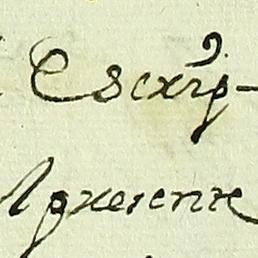 Escrip-
Apresente